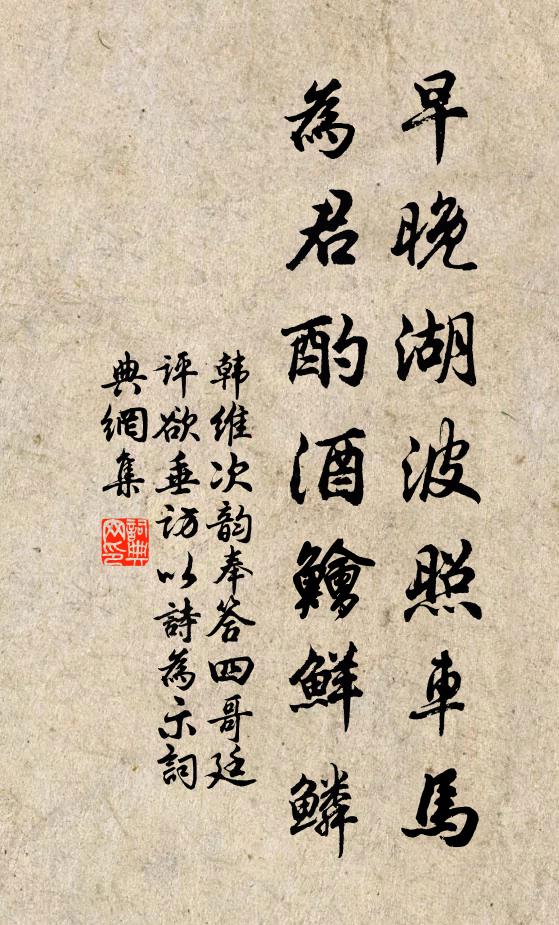 早晚湖波照車馬
為君酌酒鱠鮮鱗
韓維次韵奉答四哥廷
评欲垂访以詩為示詞
典網集
詞典网印